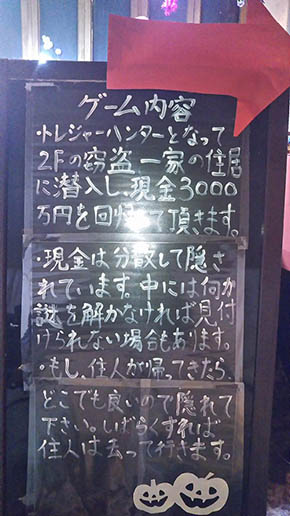 ゲーム内容
・トレジャーハンターとなって
2Fの窃盗一家の住居
に潜入し、現金3000
万円を回収して頂きます。
・現金は分散して隠さ
れています。中には何か
謎を解かなければ見付
けられない場合もあります。
・もし、住人が帰ってきたら
どこでも良いので隠れて
下さい。しばらくすれば
住人は去って行きます。